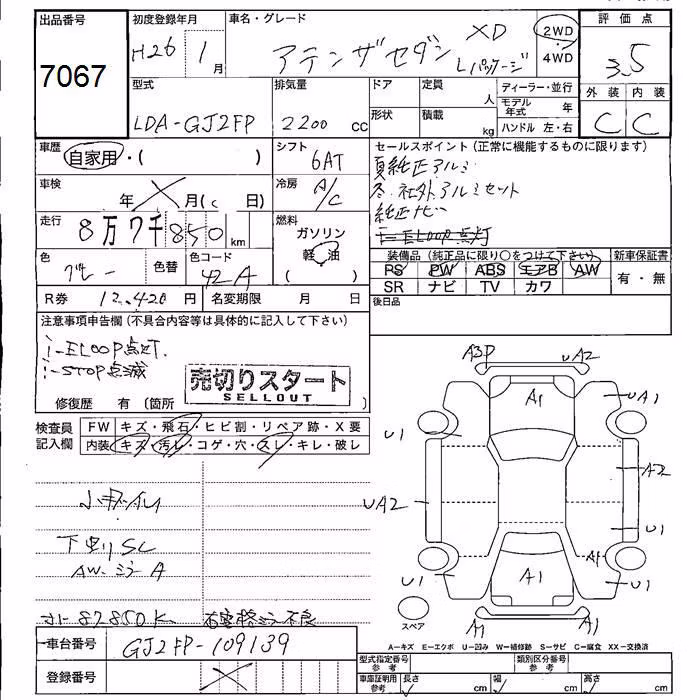 出品番号 初度登録年月 車名・グレード 評価点
7067 H26 1月 アテンザセダン XD Lパッケージ 2WD・4WD 3.5
型式 排気量 ドア 定員 人 ディーラー・並行 外装 内装
LDA-GJ2FP 2200 cc 形状 積載 kg モデル年式 年 C C
ハンドル 左・右
車歴 自家用・( ) シフト 6AT セールスポイント (正常に機能するものに限ります)
夏純正アルミ
車検 年 月( 日) 冷房 A/C 冬 社外アルミセット
純正ナビ
走行 8万7千850 km 燃料 ガソリン 軽油
i-ELOOP点灯
色 グレー 色替 色コード 42A 装備品 (純正品に限り○をつけて下さい) 新車保証書
PS PW ABS エアB AW 有・無
SR ナビ TV カワ
R券 12,420円 名変期限 月 日 後日品
注意事項申告欄 (不具合内容等は具体的に記入して下さい)
i-ELOOP点灯.
i-STOP点滅
売切りスタート
SELLOUT
修復歴 有 (箇所 )
検査員記入欄 FW キズ・飛石・ヒビ割・リペア跡・X要
内装 キズ・汚レ・コゲ・穴・スレ・キレ・破レ
A3P UA2
A1
UA1
U1
A2
UA2
U1
A1
U1 A1 U1
A1 A1
下廻りSC
AW・ミラーA
スペア
A-キズ E-エクボ U-凹み W-補修跡 S-サビ C-腐食 XX-交換済
車台番号 GJ2FP-109139
登録番号
型式指定番号 参考 類別区分番号 参考
車庫証明用 参考 長さ cm 幅 cm 高さ cm